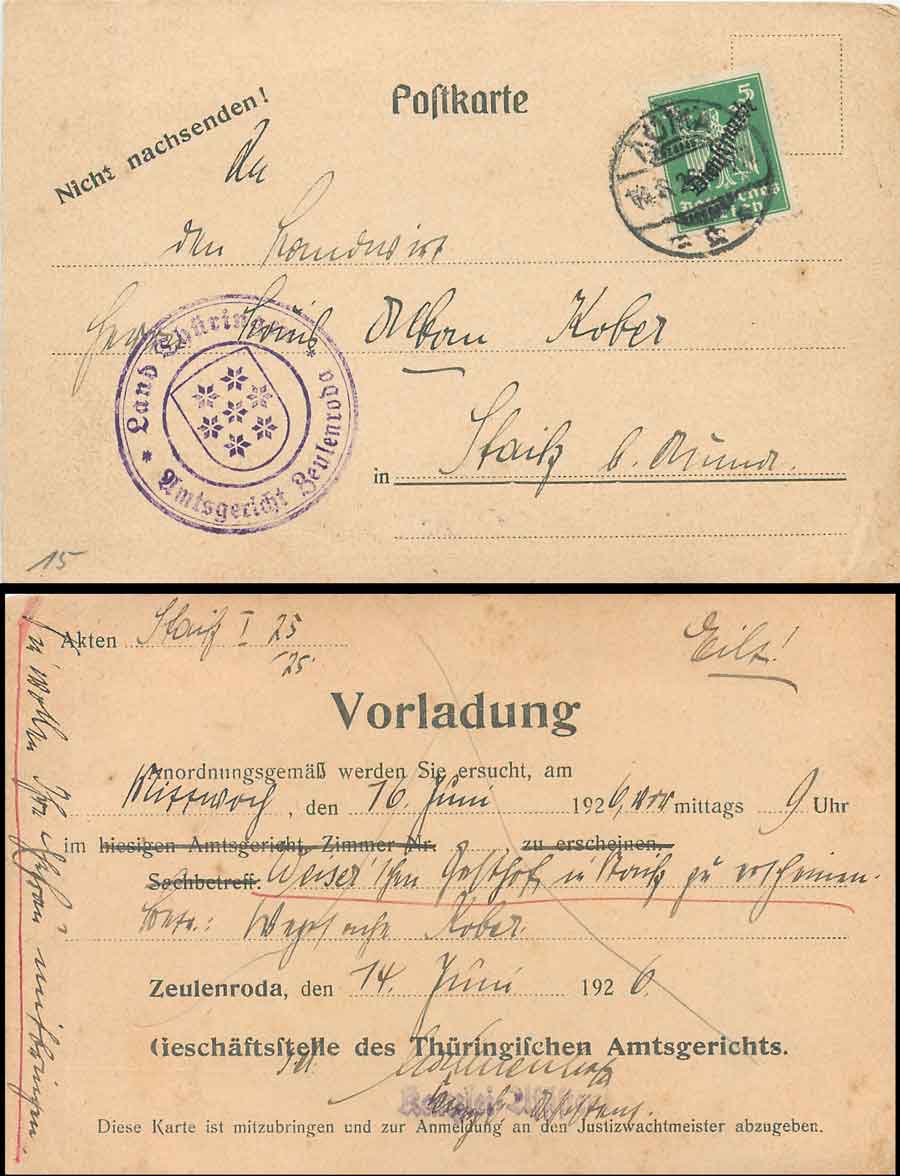 Nicht nachsenden!
Postkarte
5
Dienstmarke
Deutsches
Reich
An
den Landwirt
Herrn Louis Alban Kober
in Staitz b. Auma.
* Land Thüringen *
Amtsgericht Zeulenroda
15
Akten Staitz I 25
25.
Eilt!
Vorladung
Anordnungsgemäß werden Sie ersucht, am
Mittwoch, den 16. Juni 1926, vormittags 9 Uhr
im hiesigen Amtsgericht, Zimmer Nr. zu erscheinen.
Sachbetreff: Weiser'schen Gasthof in Staitz zu erscheinen.
Betr.: Kober.
Zeulenroda, den 14. Juni 1926.
Geschäftsstelle des Thüringischen Amtsgerichts.
Diese Karte ist mitzubringen und zur Anmeldung an den Justizwachtmeister abzugeben.
u. wollen Ihre Ehefrau mitbringen.